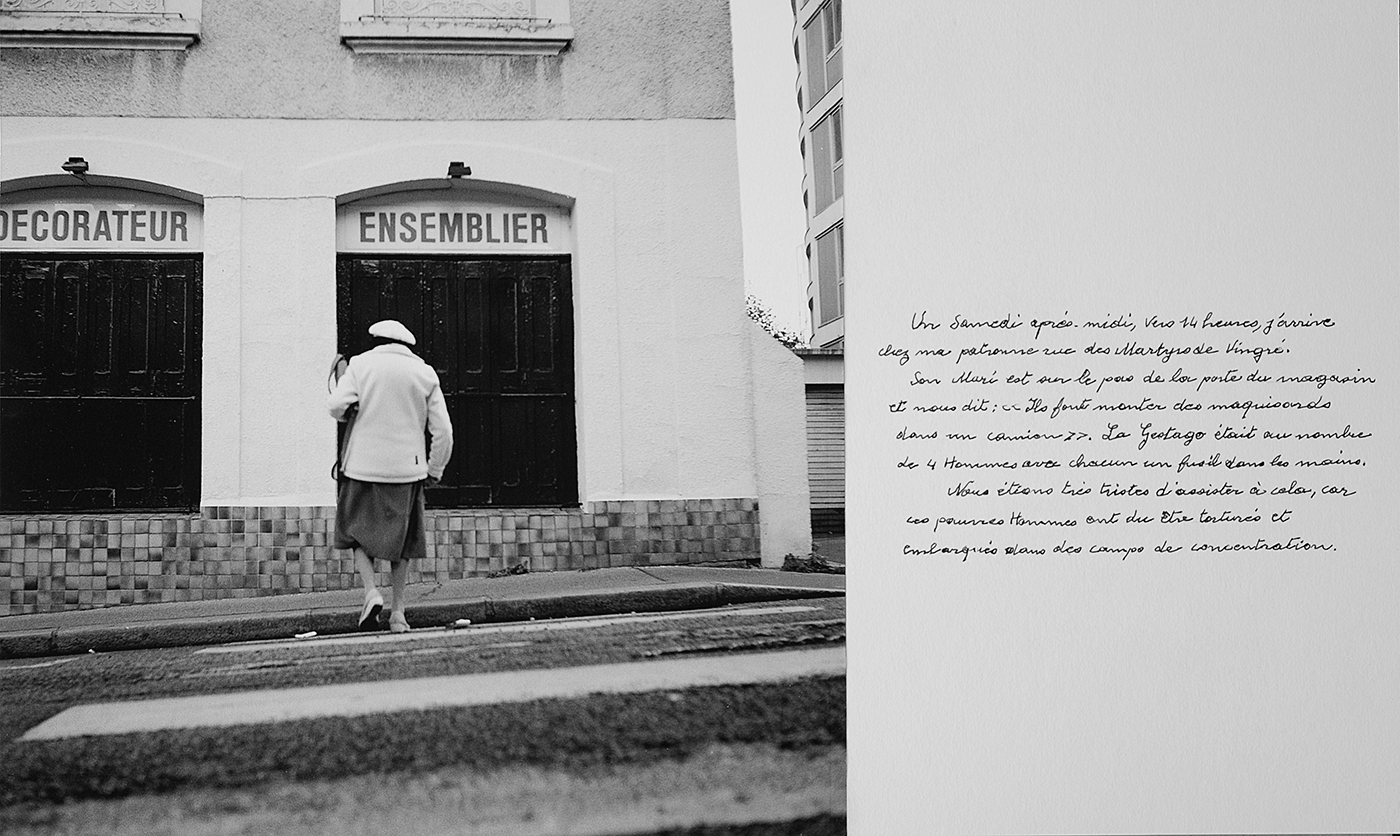 DECORATEUR
ENSEMBLIER
Un Samedi après-midi, Vers 14 heures, j'arrive
chez ma patronne rue des Martyrs de Vingré.
Son Mari est sur le pas de la porte du magasin
et nous dit : << Ils font monter des maquisards
dans un camion >>. La Gestapo était au nombre
de 4 Hommes avec chacun un fusil dans les mains.
Nous étions très tristes d'assister à cela, car
ces pauvres Hommes ont du être torturés et
embarqués dans des camps de concentration.